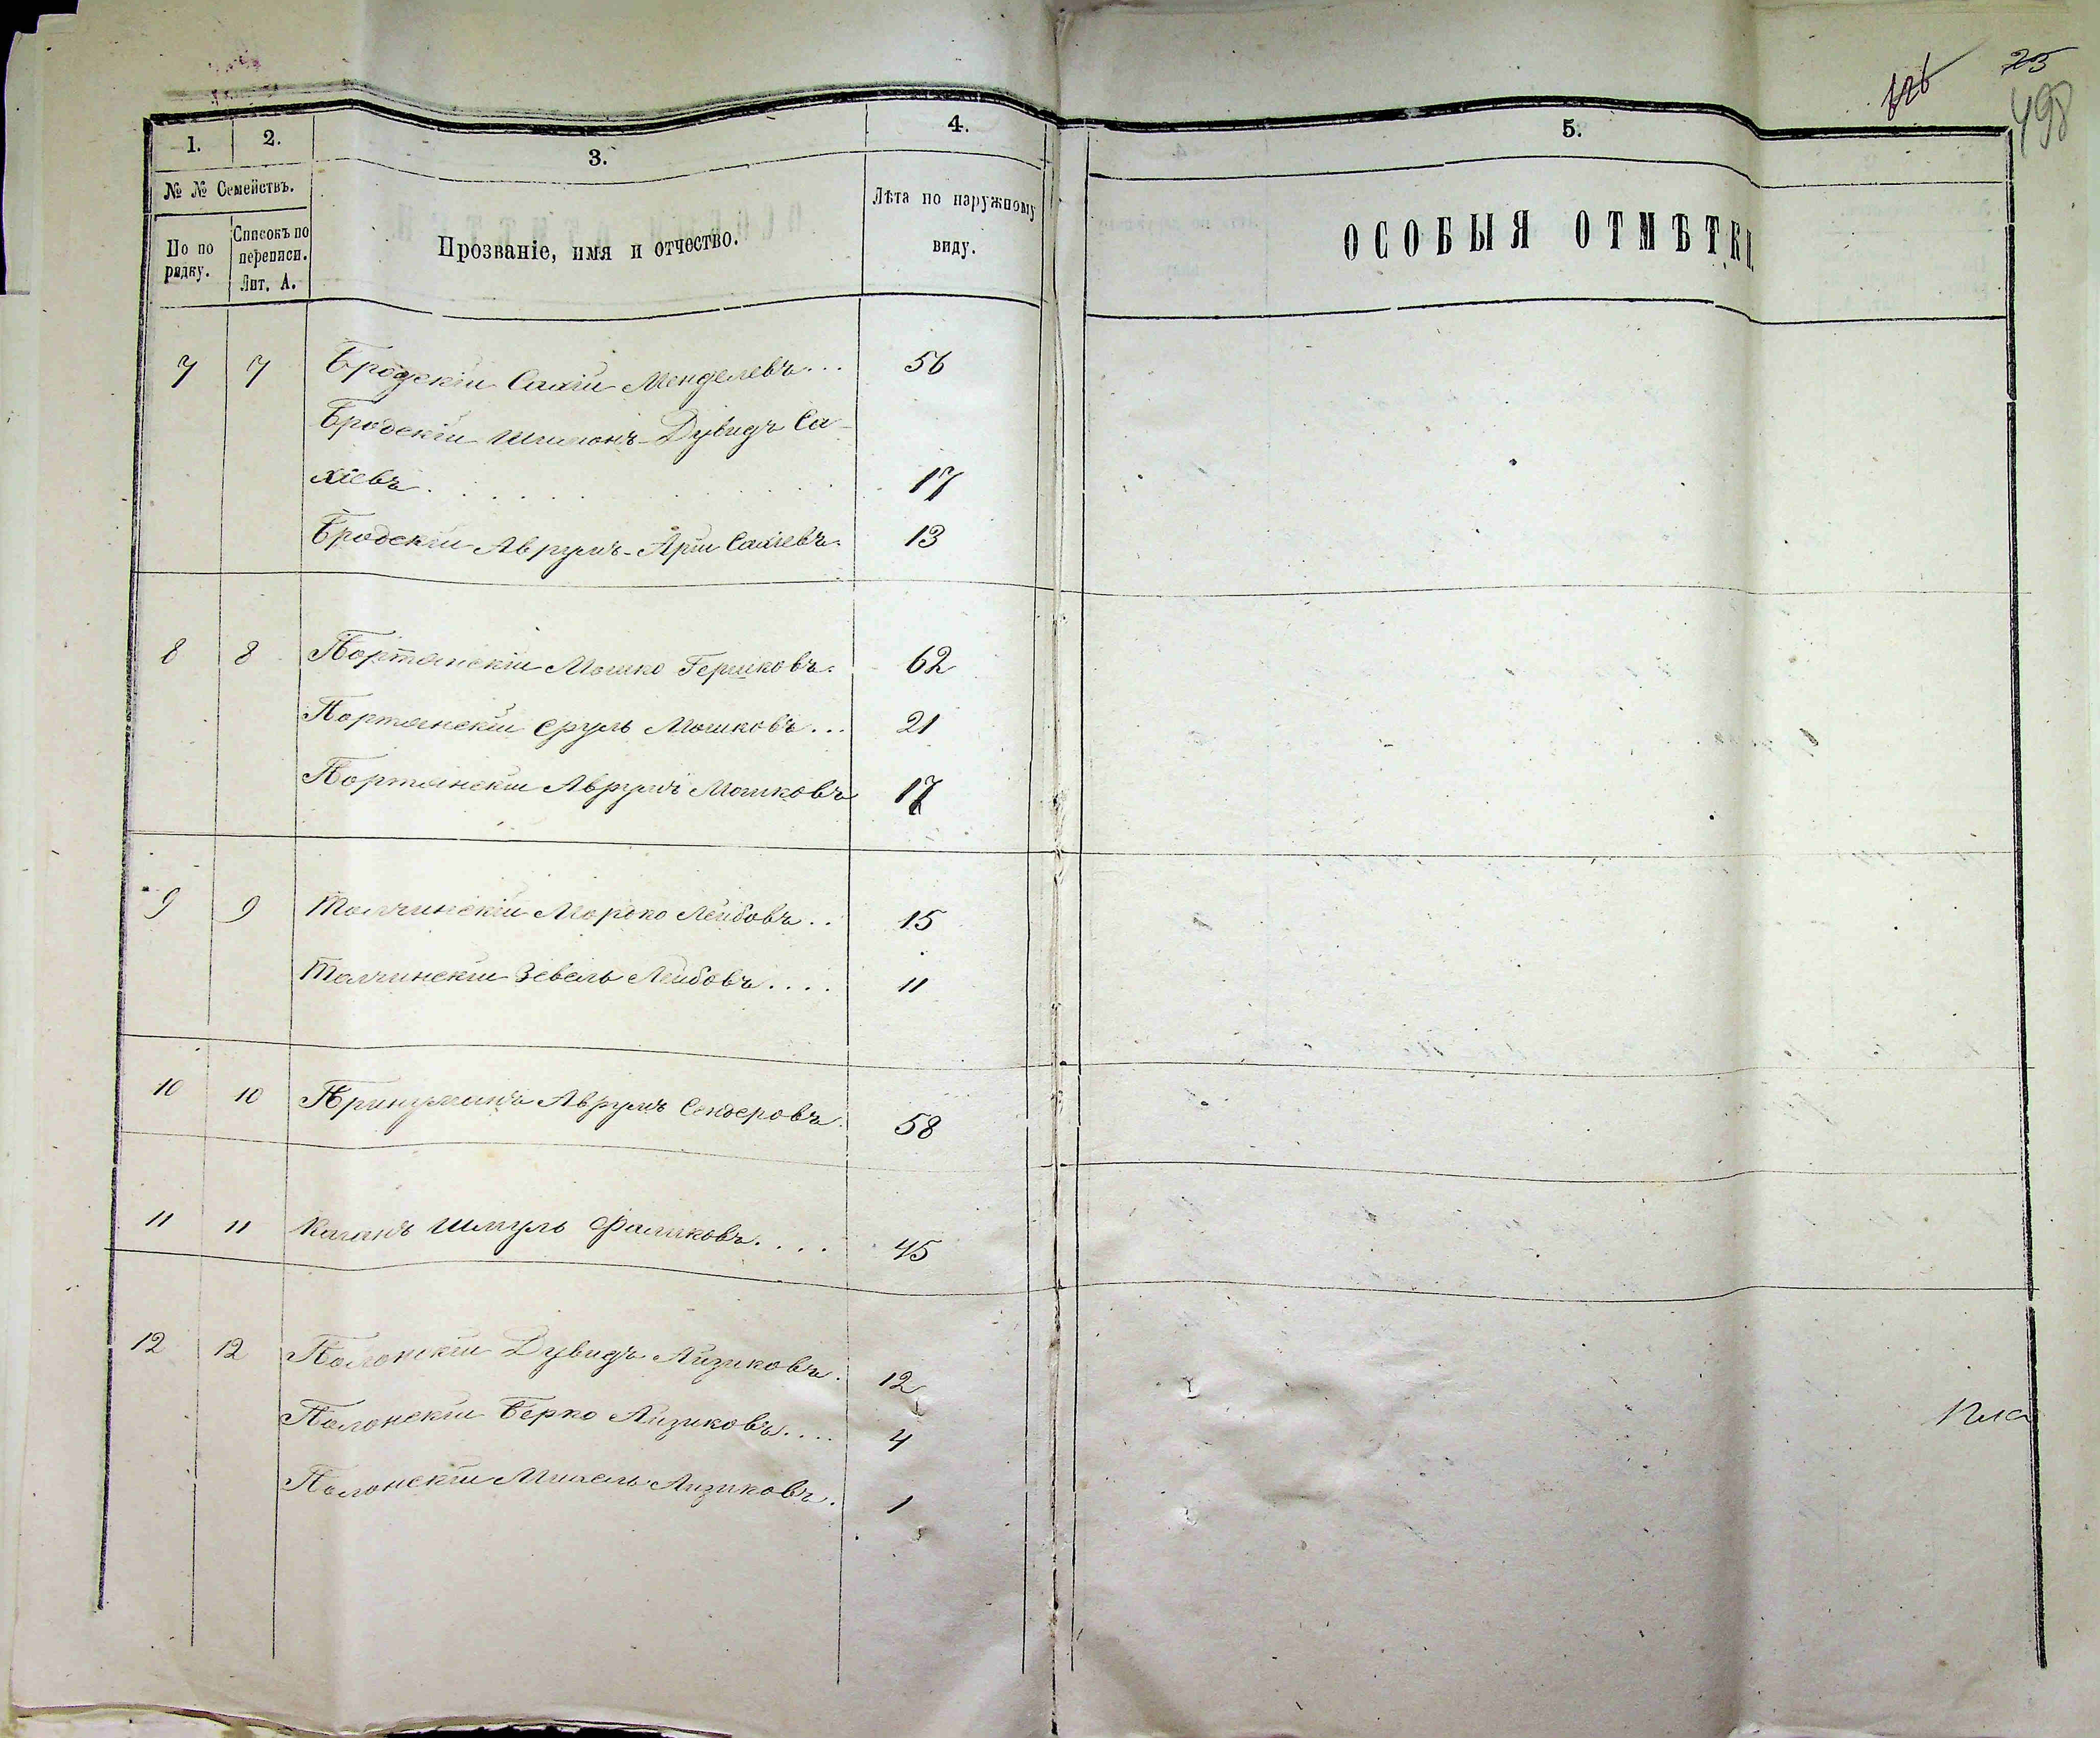 25
498
1. 2. 3. 4. 5.
№ № Семействъ.
По по рядку.
Списокъ по переписи. Лит. А.
Прозваніе, имя и отчество.
Лѣта по наружному виду.
ОСОБЫЯ ОТМѢТКИ
7 7 Бродскій Сахій Менделевъ... 56
Бродскій Шимонъ-Дувидъ Са-
хіевъ. . . . . . 17
Бродскій Аврумъ-Арій Сахіевъ. 13
8 8 Портянскій Мошко Гершковъ. 62
Портянскій Сруль Мошковъ... 21
Портянскій Аврумъ Мошковъ 17
9 9 Талчинскій Мороко Лейбовъ.. 15
Талчинскій Зевель Лейбовъ.... 11
10 10 Аврумъ Сендеровъ. 58
11 11 Каганъ Шмуль Фальковъ.... 45
12 12 Полонскій Дувидъ Айзиковъ. 12
Полонскій Берко Айзиковъ.... 4
Полонскій Михель Айзиковъ. 1